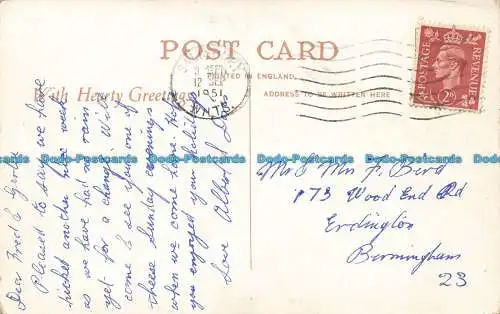 POST CARD
PRINTED IN ENGLAND
With Hearty Greetings
ADDRESS TO BE WRITTEN HERE
12 SEP
1951
POSTAGE
REVENUE
2D
Dear Fred &
Pleased to say we have
another nice week
as we have had no rain
yet for a change. Will
come & see you one of
these Sunday evenings
when we come home. Hope
you enjoyed your holiday
Love Albert &
Mr & Mrs F. Bird
173 Wood End Rd
Erdington
Birmingham
23
Bodo-Postcards.co.uk
Bodo-Postcards.co.uk
Bodo-Postcards.co.uk
Bodo-Postcards.co.uk